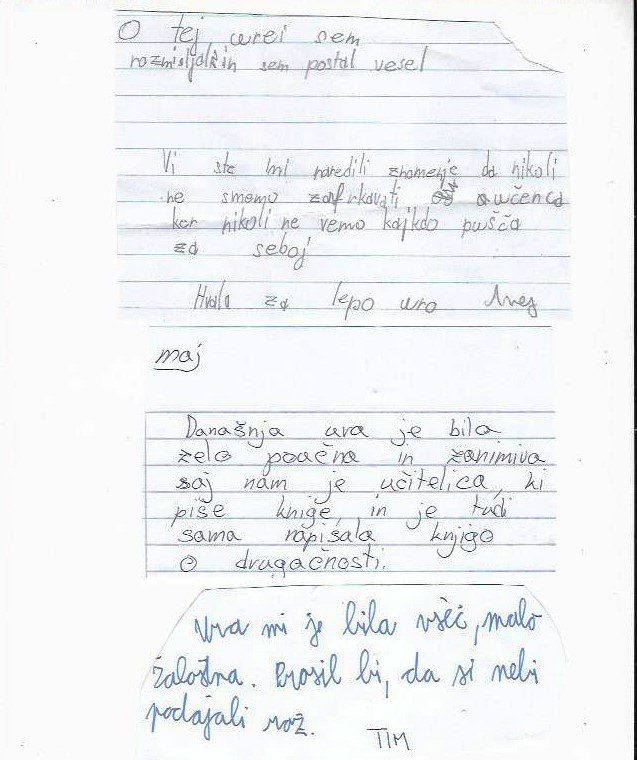 O tej urei sem
rozmisljalkin sem postal vesel
Vi ste mi naredili znamenje da nikoli
ne smemo zafrkavati učenca
ker nikoli ne vemo kajkdo pušča
za seboj
Hvala za lepo uro Anej
maj
Današnja ura je bila
zelo poučna in zanimiva
saj nam je učitelica, ki
piše knige, in je tudi
sama napisala knjigo
o drugačnosti.
Ura mi je bila všeč, malo
žalostna. Prosil bi, da si nebi
podajali rož.
TIM